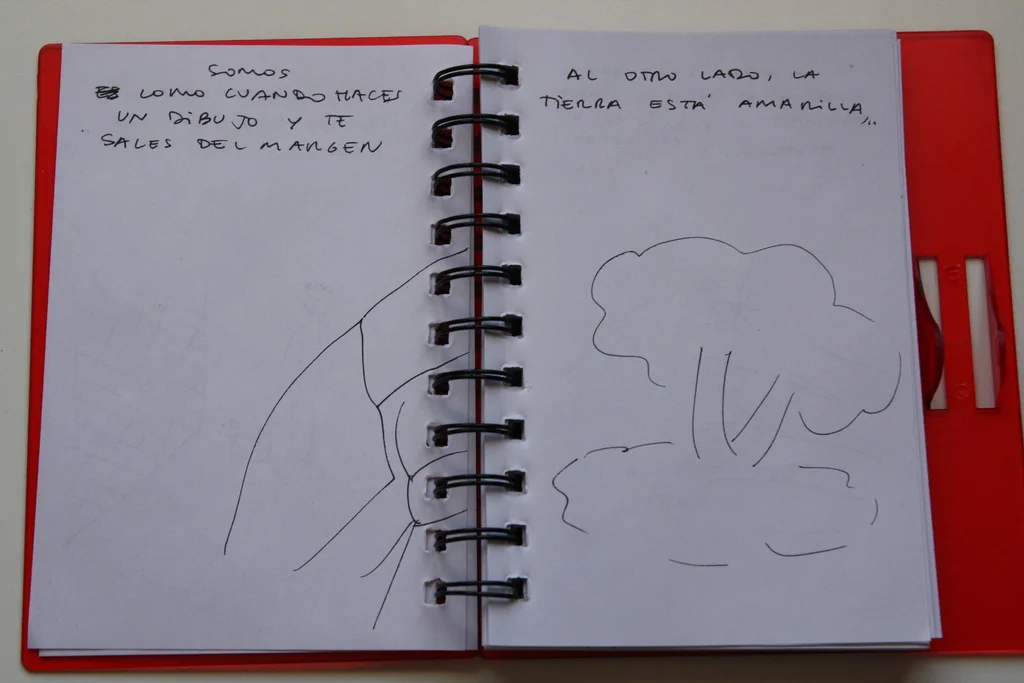 SOMOS
COMO CUANDO HACES
UN DIBUJO Y TE
SALES DEL MARGEN
AL OTRO LADO, LA
TIERRA ESTÁ AMARILLA...